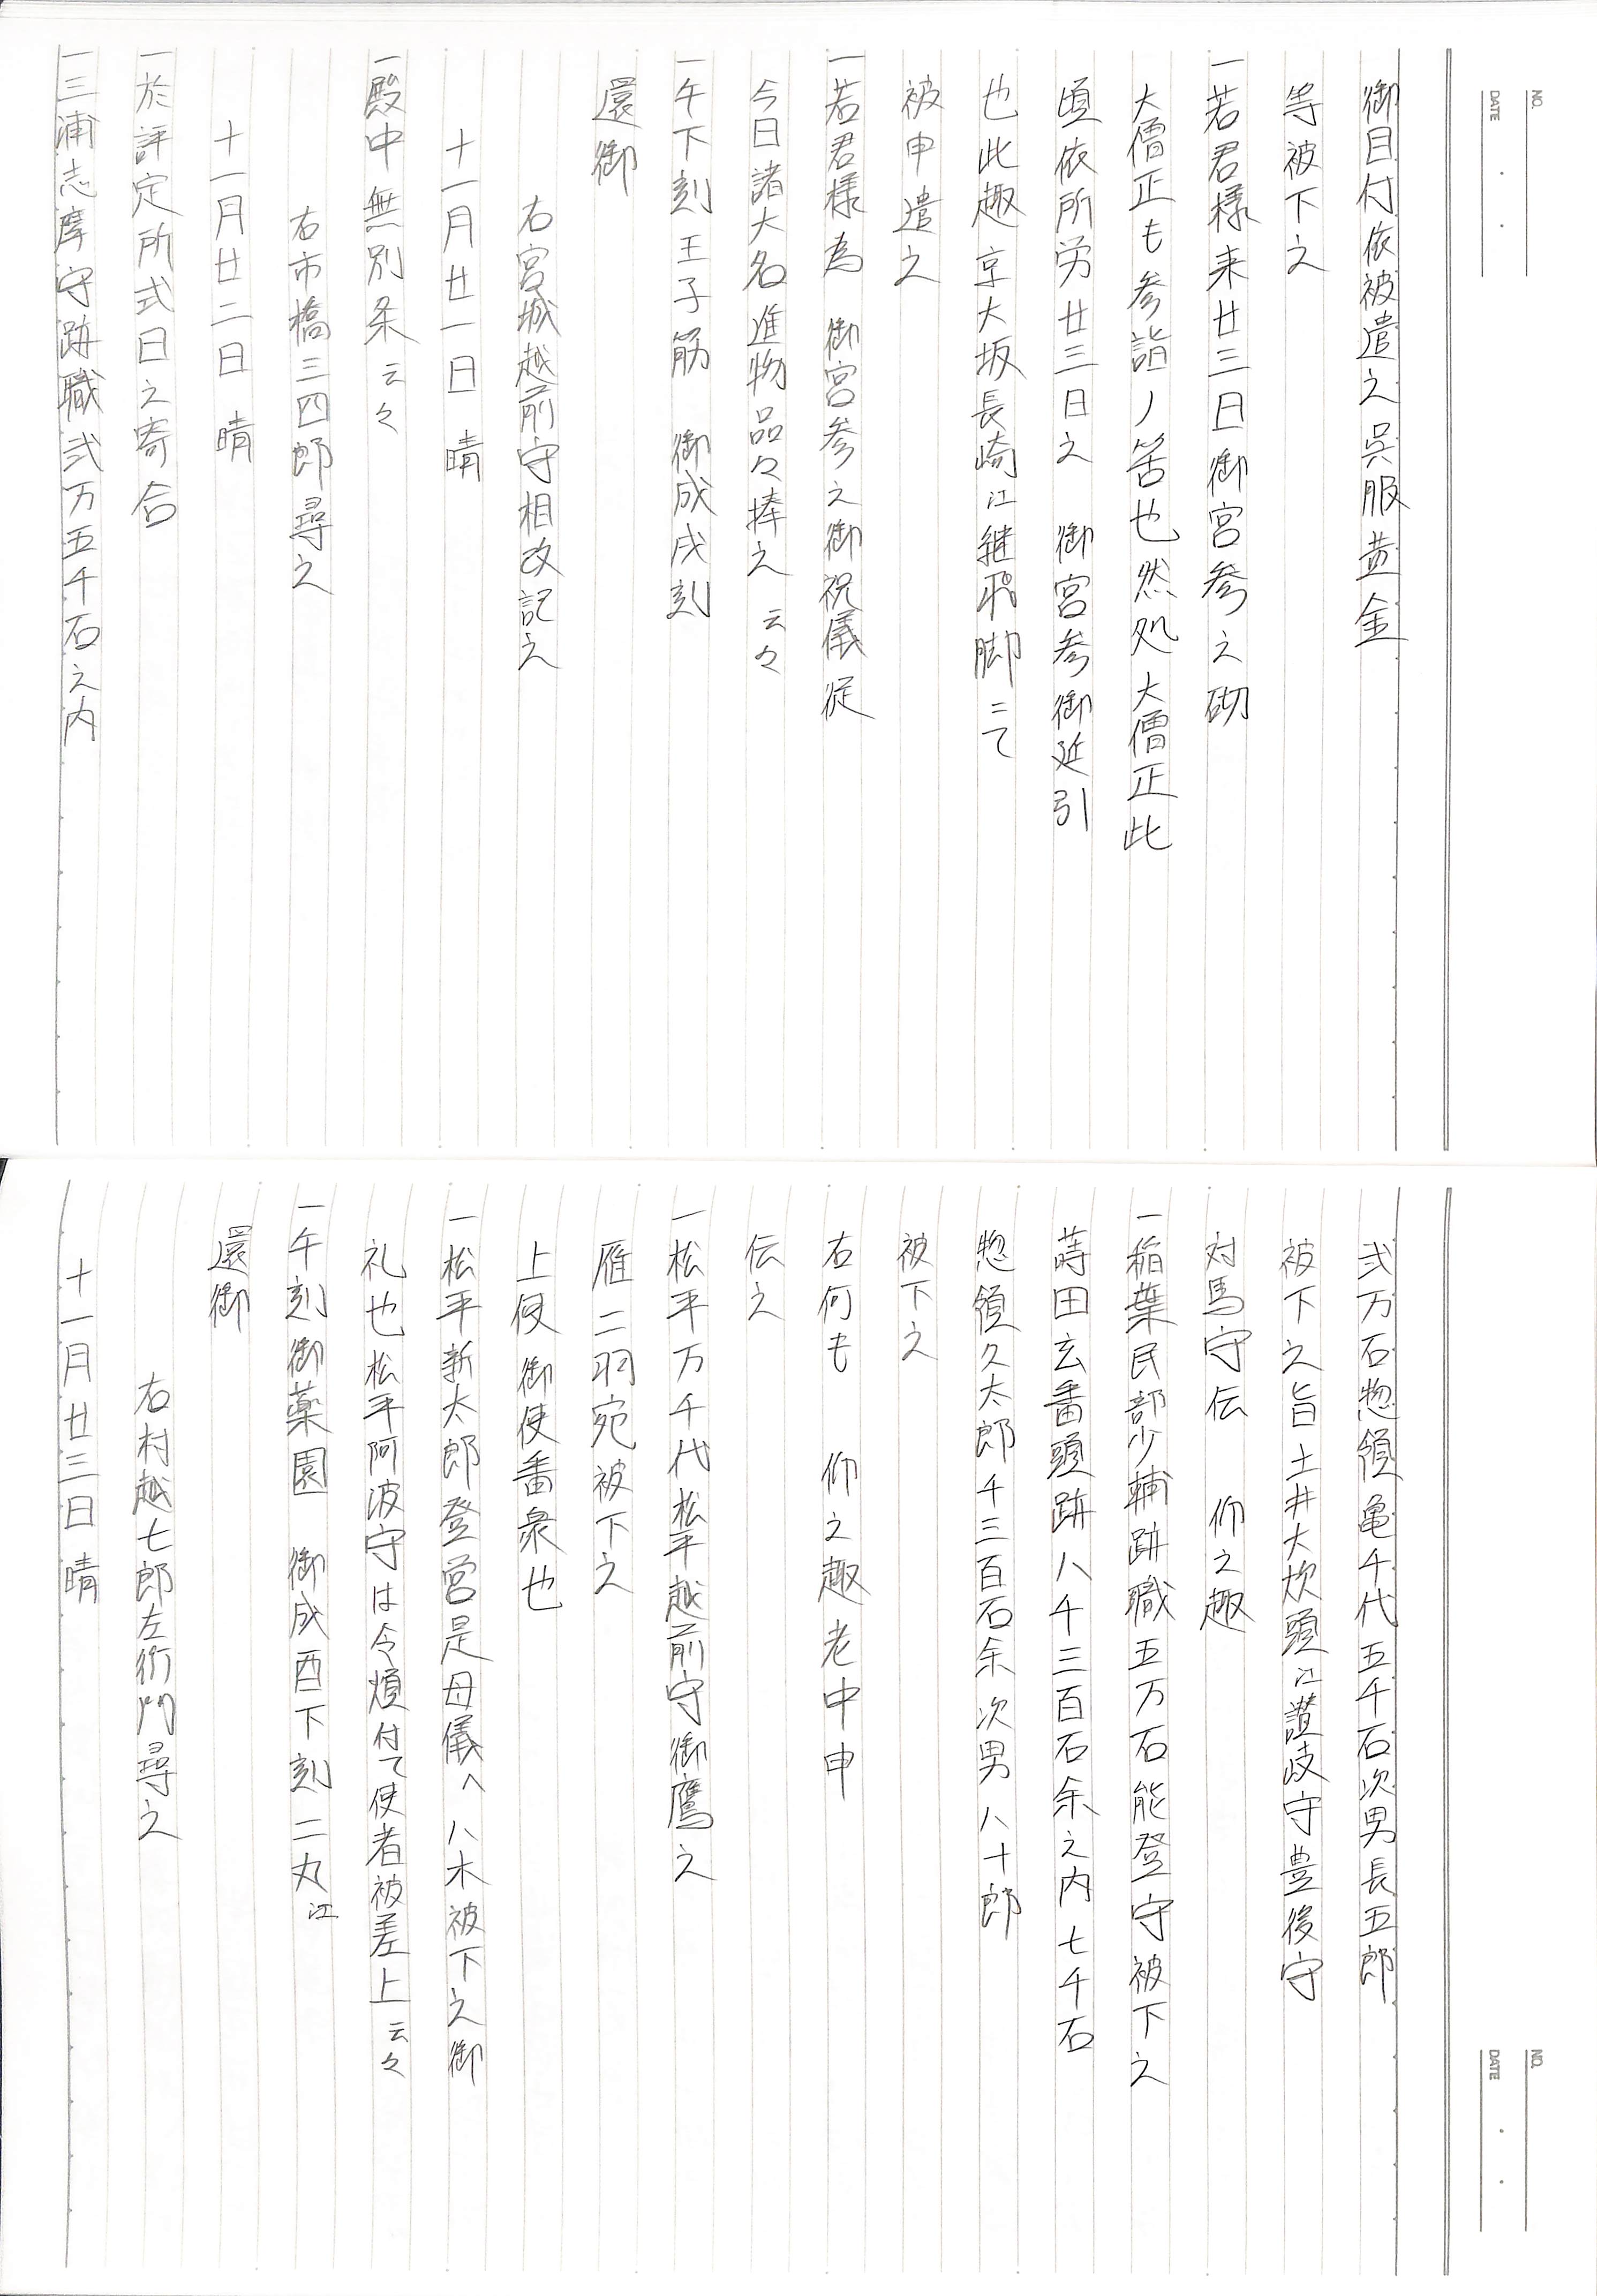 NO.
DATE
御目付依被遣之呉服黄金
等被下之
一若君様来廿三日御宮参之砌
大僧正も参詣ノ筈也然処大僧正此
頃依所労廿三日之　御宮参御延引
也此趣京大坂長崎江継飛脚ニて
被申遣之
一若君様為　御宮参之御祝儀従
今日諸大名進物品々捧之云々
一午下刻王子筋　御成戌刻
還御
右宮城越前守相改記之
十一月廿一日　晴
一殿中無別条云々
右市橋三四郎尋之
十一月廿二日　晴
一於評定所式日之寄合
一三浦志摩守跡職弐万五千石之内
NO.
DATE
弐万石惣領亀千代五千石次男長五郎
被下之旨土井大炊頭江讃岐守豊後守
対馬守伝　仰之趣
一稲葉民部少輔跡職五万石能登守被下之
蒔田玄番頭跡八千三百石余之内七千石
惣領久太郎千三百石余次男八十郎
被下之
右何も　仰之趣老中申
伝之
一松平万千代松平越前守御鷹之
雁二羽宛被下之
上使御使番衆也
一松平新太郎登営是母儀へ八木被下之御
礼也松平阿波守は今煩付て使者被差上云々
一午刻御薬園　御成酉下刻二丸江
還御
右村越七郎左衛門尋之
十一月廿三日　晴